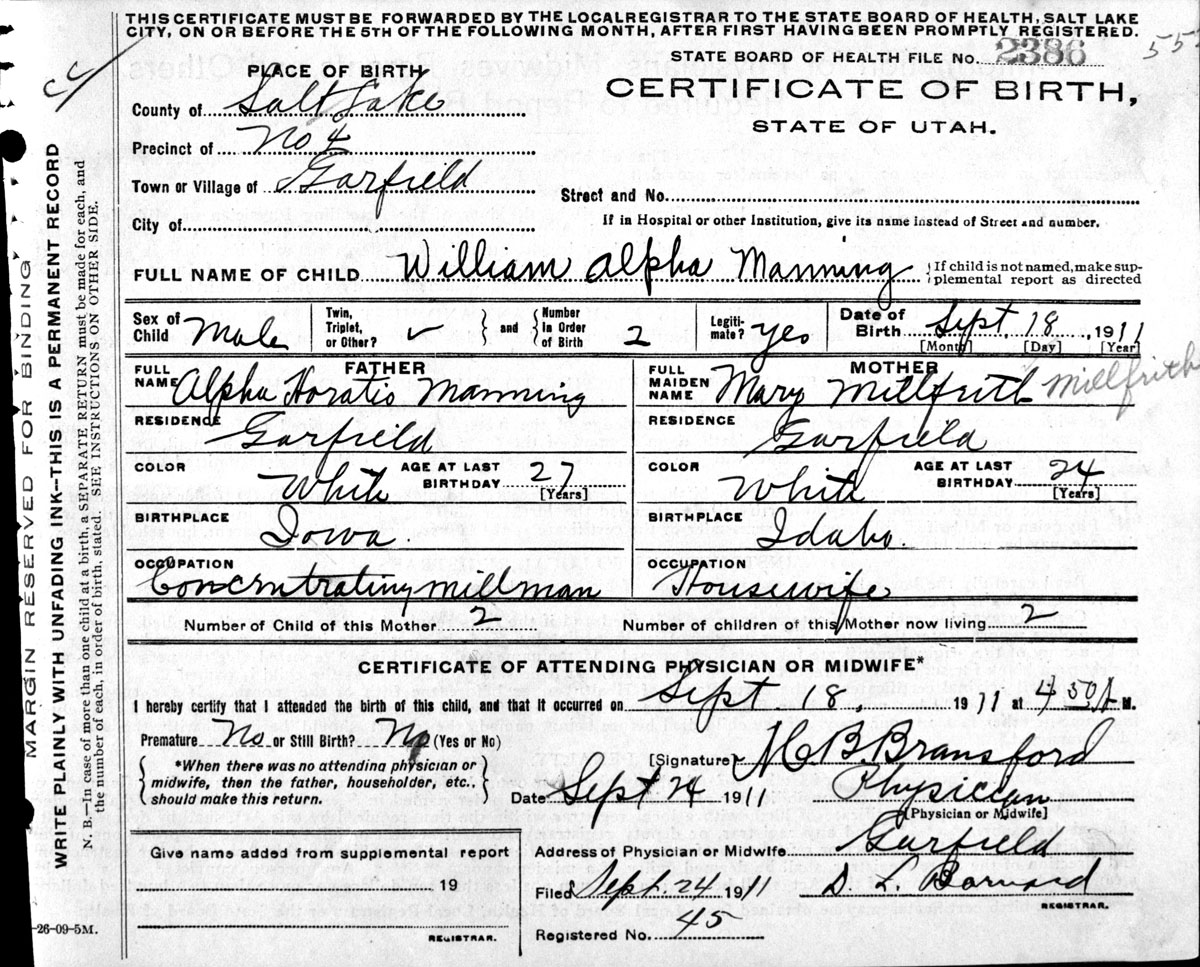 THIS CERTIFICATE MUST BE FORWARDED BY THE LOCALREGISTRAR TO THE STATE BOARD OF HEALTH, SALT LAKE
CITY, ON OR BEFORE THE 5TH OF THE FOLLOWING MONTH, AFTER FIRST HAVING BEEN PROMPTLY REGISTERED.
STATE BOARD OF HEALTH FILE No. 2386
PLACE OF BIRTH
CERTIFICATE OF BIRTH,
STATE OF UTAH.
County of Salt Lake
Precinct of No 4
Town or Village of Garfield
Street and No.
City of
If in Hospital or other Institution, give its name instead of Street and number.
FULL NAME OF CHILD William Alpha Manning
{If child is not named, make sup-
plemental report as directed
Sex of Child Male
Twin, Triplet, or Other? ✓ } and { Number In Order of Birth 2
Legiti-mate? yes
Date of Birth Sept 18, 1911
[Month] [Day] [Year]
FATHER
FULL NAME Alpha Horatio Manning
RESIDENCE Garfield
COLOR White AGE AT LAST BIRTHDAY 27 [Years]
BIRTHPLACE Iowa.
OCCUPATION Concentrating millman
MOTHER
FULL MAIDEN NAME Mary Millfrith Millfrith
RESIDENCE Garfield
COLOR White AGE AT LAST BIRTHDAY 24 [Years]
BIRTHPLACE Idaho.
OCCUPATION Housewife
Number of Child of this Mother 2 Number of children of this Mother now living 2
CERTIFICATE OF ATTENDING PHYSICIAN OR MIDWIFE*
I hereby certify that I attended the birth of this child, and that it occurred on Sept 18, 1911 at 4 50 A M.
Premature No or Still Birth? No (Yes or No)
*When there was no attending physician or
midwife, then the father, householder, etc.,
should make this return.
[Signature] B. Bransford
Date Sept 24 1911 Physician
[Physician or Midwife]
Give name added from supplemental report
19
REGISTRAR.
Address of Physician or Midwife Garfield
Filed Sept. 24 1911 S. L. Barnard
REGISTRAR.
Registered No. 45
-26-09-5M.
MARGIN RESERVED FOR BINDING
WRITE PLAINLY WITH UNFADING INK--THIS IS A PERMANENT RECORD
N. B.—In case of more than one child at a birth, a SEPARATE RETURN must be made for each, and
the number of each, in order of birth, stated. SEE INSTRUCTIONS ON OTHER SIDE.